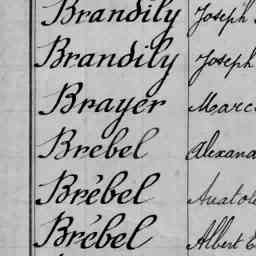 Brandily Joseph
Brandily Joseph
Brayer Marc
Brebel Alexand
Brébel Anatole
Brébel Albert E